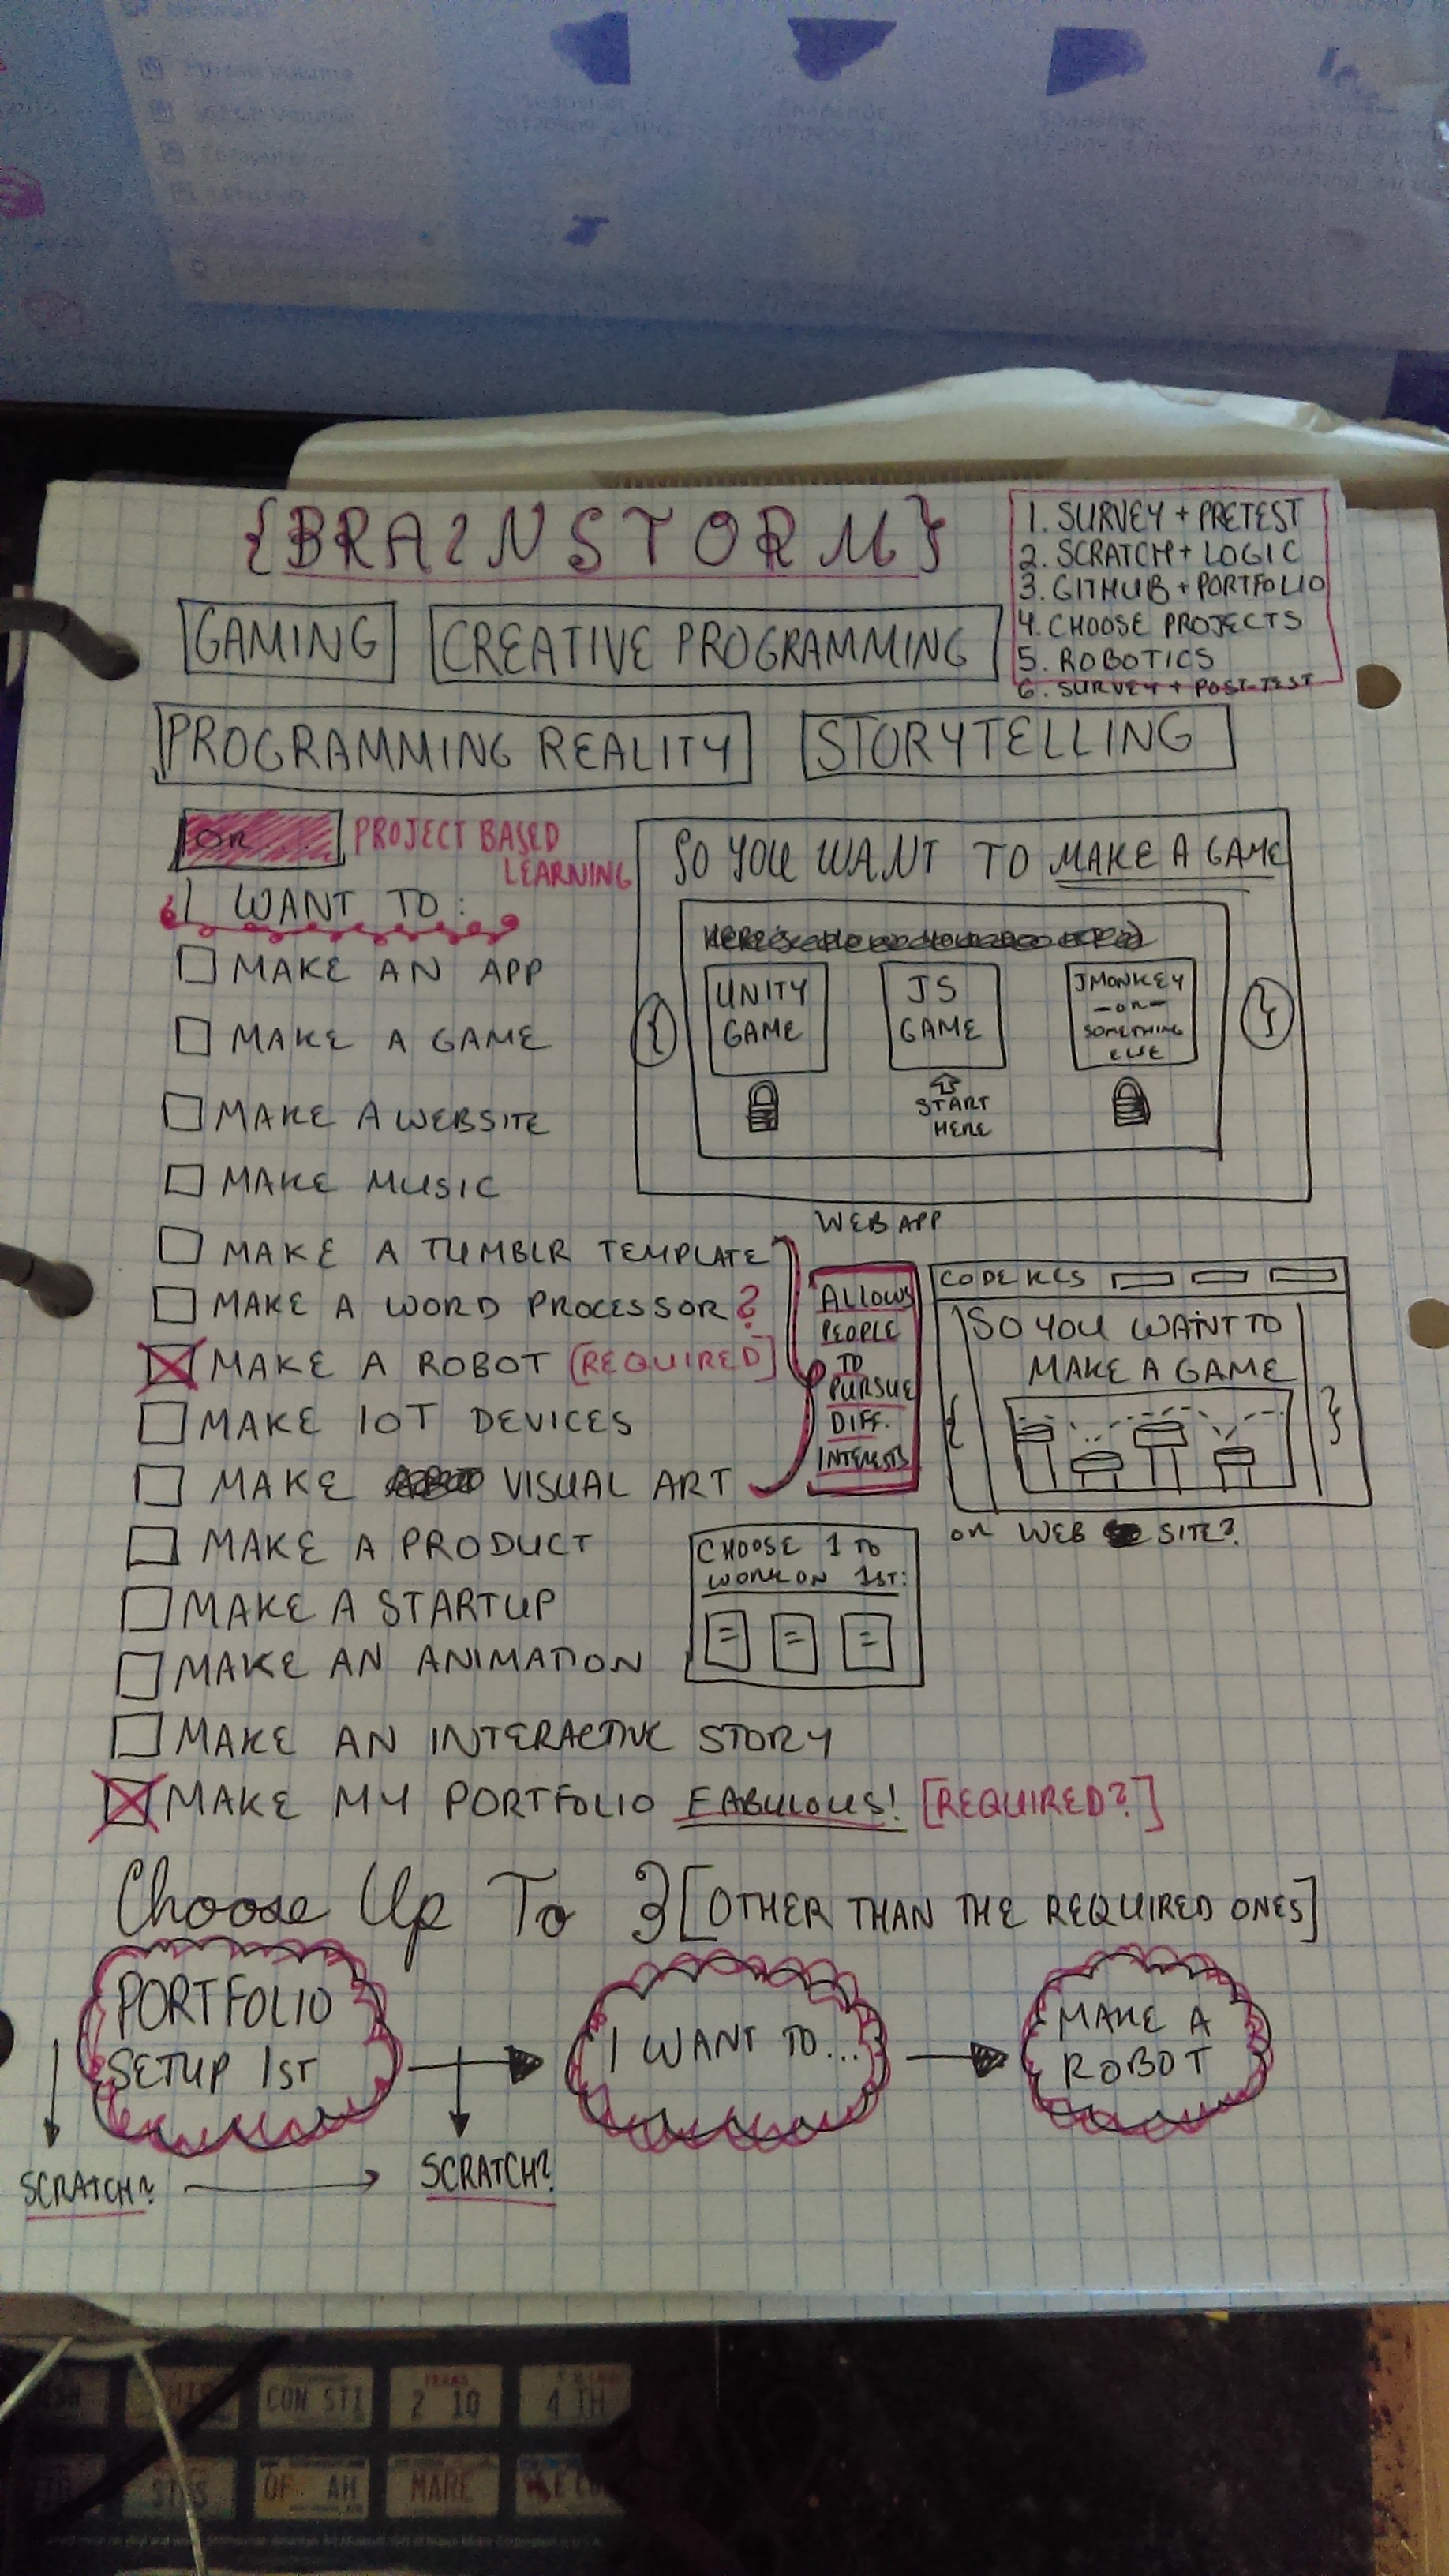 {BRAINSTORM}
1. SURVEY + PRETEST
2. SCRATCH + LOGIC
3. GITHUB + PORTFOLIO
4. CHOOSE PROJECTS
5. ROBOTICS
6. SURVEY + POST-TEST
GAMING
CREATIVE PROGRAMMING
PROGRAMMING REALITY
STORYTELLING
OR...
PROJECT BASED
LEARNING
I WANT TO:
MAKE AN APP
MAKE A GAME
MAKE A WEBSITE
MAKE MUSIC
MAKE A TUMBLR TEMPLATE
MAKE A WORD PROCESSOR?
MAKE A ROBOT [REQUIRED]
MAKE IOT DEVICES
MAKE VISUAL ART
MAKE A PRODUCT
MAKE A STARTUP
MAKE AN ANIMATION
MAKE AN INTERACTIVE STORY
MAKE MY PORTFOLIO FABULOUS! [REQUIRED?]
SO YOU WANT TO MAKE A GAME
UNITY
GAME
JS
GAME
JMONKEY
-OR-
SOMETHING
ELSE
START
HERE
WEB APP
ALLOWS
PEOPLE
TO
PURSUE
DIFF.
INTERESTS
CODE KCS
SO YOU WANT TO
MAKE A GAME
OR WEB SITE?
CHOOSE 1 TO
WORK ON 1ST:
Choose Up To 3 [OTHER THAN THE REQUIRED ONES]
PORTFOLIO
SETUP 1ST
I WANT TO...
MAKE A
ROBOT
SCRATCH?
SCRATCH?
CON STI
2 10
4 TH
OF AH
MARE